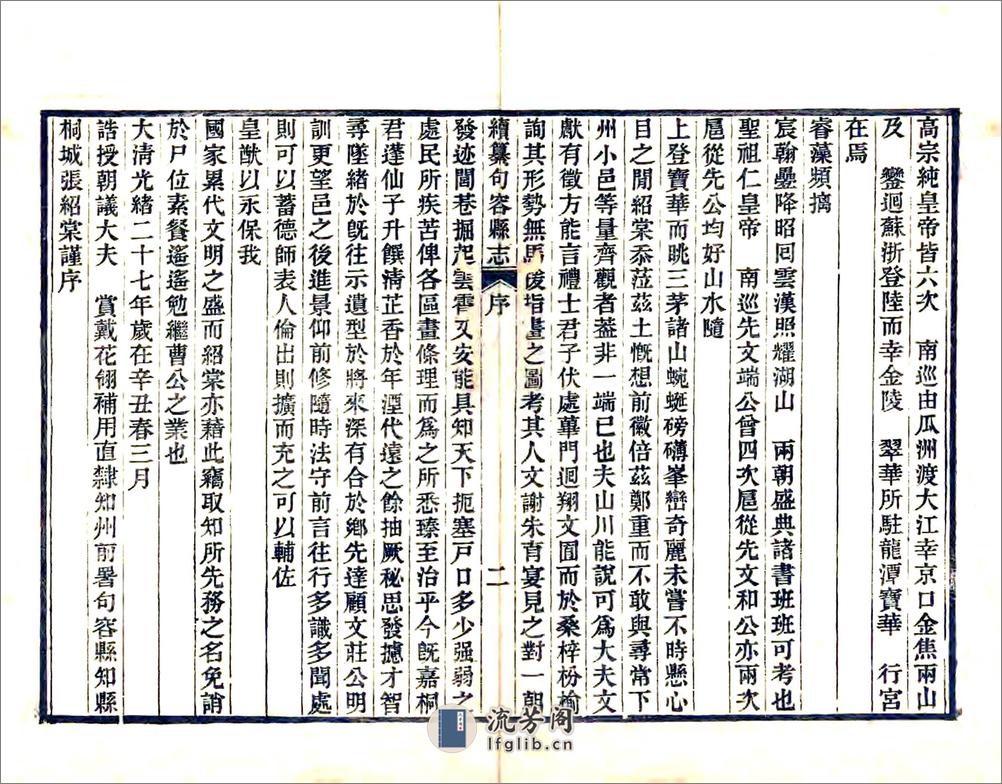 高宗純皇帝皆六次　南巡由瓜洲渡大江幸京口金焦兩山
及　鑾迴蘇浙登陸而幸金陵　翠華所駐龍潭寶華　行宮
在焉
睿藻頻摛
宸翰疊降昭回雲漢照耀湖山　兩朝盛典諸書班班可考也
聖祖仁皇帝　南巡先文端公曾四次扈從先文和公亦兩次
扈從先公均好山水隨
上登寶華而眺三茅諸山蜿蜒磅礴峯巒奇麗未嘗不時懸心
目之閒紹棠忝蒞茲土慨想前徽倍茲鄭重而不敢與尋常下
州小邑等量齊觀者葢非一端已也夫山川能說可爲大夫文
獻有徵方能言禮士君子伏處蓽門迴翔文囿而於桑梓枌榆
詢其形勢無馬援指畫之圖考其人文謝朱育宴見之對一朝
續纂句容縣志　序　二
發迹閭巷掘起雲霄又安能具知天下扼塞戸口多少强弱之
處民所疾苦俾各區畫條理而爲之所悉臻至治乎今旣嘉桐
君蓬仙子升饌淸芷香於年湮代遠之餘抽厥秘思發攄才智
尋墜緒於旣往示遺型於將來深有合於鄕先達顧文莊公明
訓更望邑之後進景仰前修隨時法守前言往行多識多聞處
則可以蓄德師表人倫出則擴而充之可以輔佐
皇猷以永保我
國家累代文明之盛而紹棠亦藉此竊取知所先務之名免誚
於尸位素餐遙遙勉繼曹公之業也
大淸光緒二十七年歲在辛丑春三月
誥授朝議大夫　賞戴花翎補用直隸知州前署句容縣知縣
桐城張紹棠謹序
流芳阁
lfglib.cn